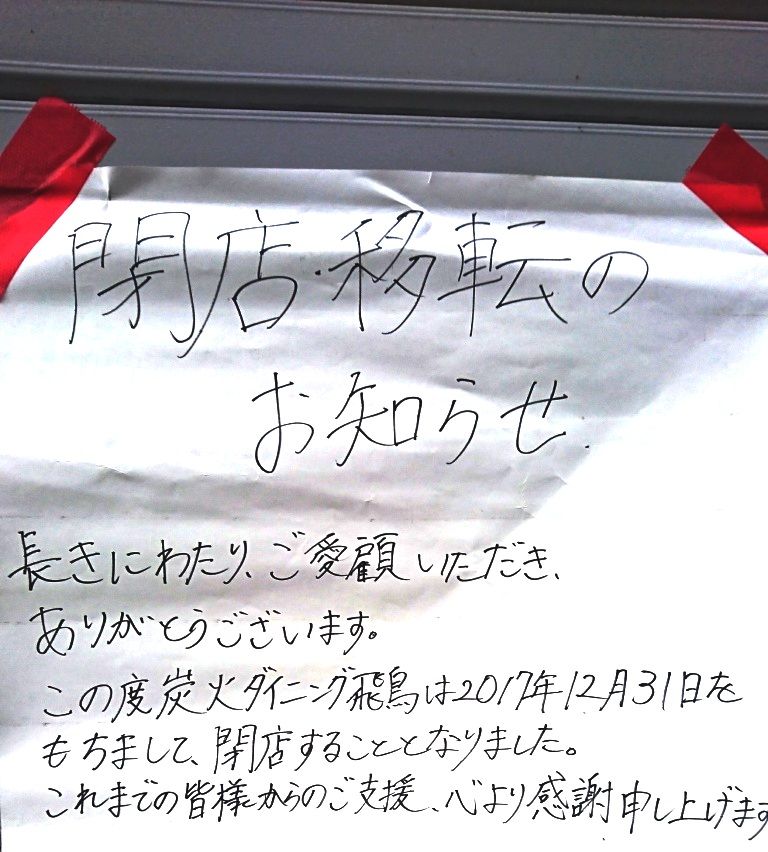 閉店・移転の
お知らせ
長きにわたり、ご愛顧いただき、
ありがとうございます。
この度炭火ダイニング飛鳥は2017年12月31日を
もちまして、閉店することとなりました。
これまでの皆様からのご支援、心より感謝申し上げます